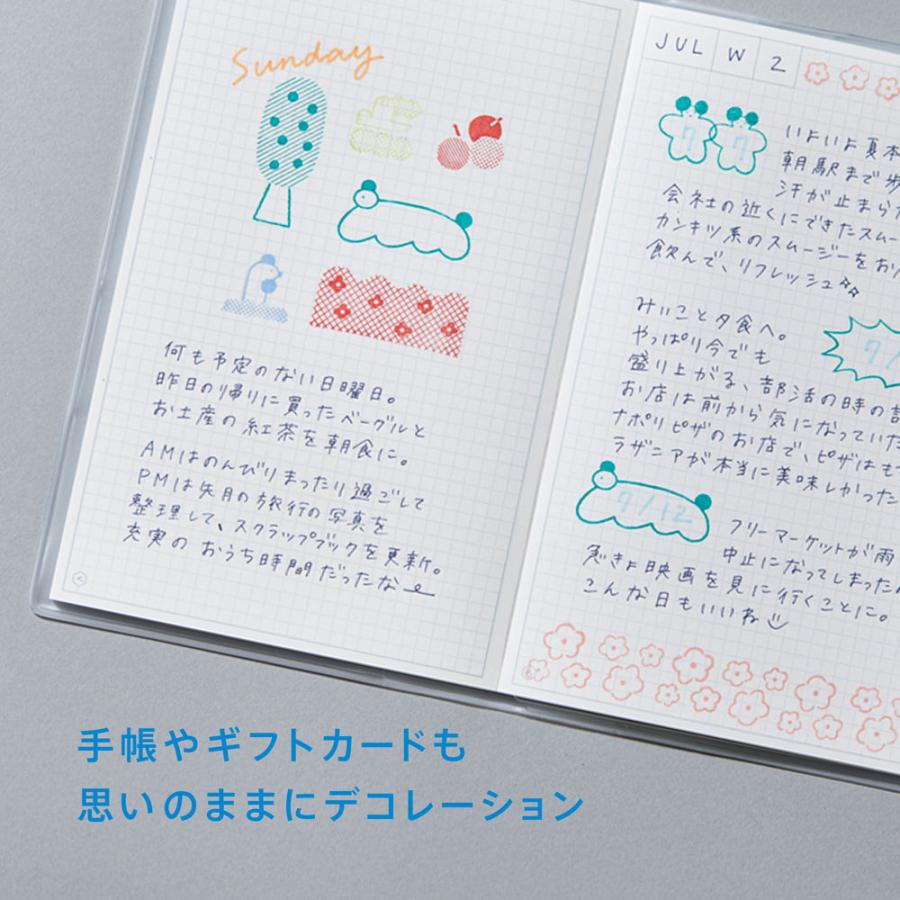 Sunday
何も予定のない日曜日。
昨日の帰りに買ったベーグルと
お土産の紅茶を朝食に。
AMはのんびりまったり過ごして
PMは先月の旅行の写真を
整理して、スクラップブックを更新。
充実の おうち時間だったな
JUL W 2
7 7
いよいよ夏本
朝駅まで歩
汗が止まら
会社の近くにできたスムー
カンキツ系のスムージーをお
飲んで、リフレッシュ
みいこと夕食へ。
やっぱり今でも
盛り上がる、部活の時の
お店は前から気になっていた
ナポリピザのお店で、ピザはも
ラザニアが本当に美味しかった
7/
7/12
フリーマーケットが雨
中止になってしまった
急きょ映画を見に行くことに。
こんな日もいいね
手帳やギフトカードも
思いのままにデコレーション